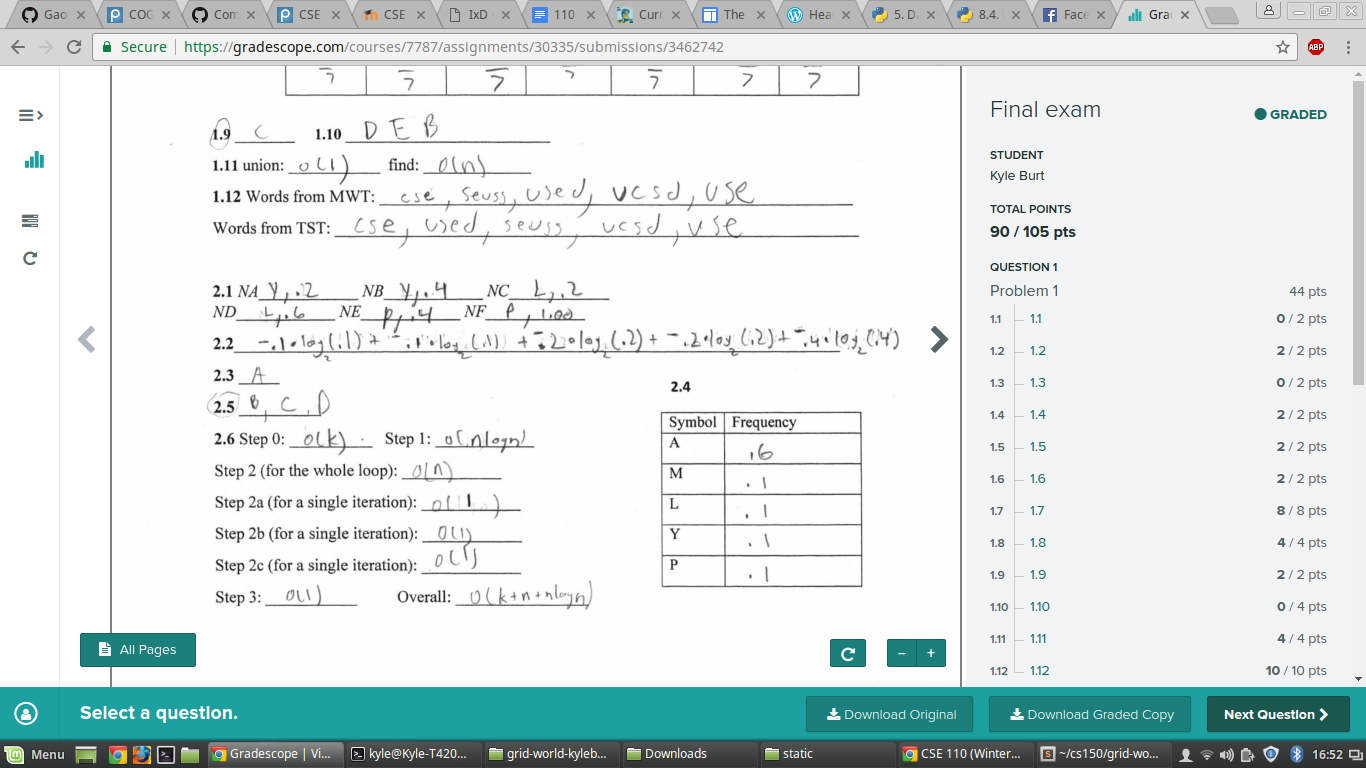 Gao
COG
Com
CSE
CSE
IxD
110
Curr
The
Hea
5. D
8.4.
Face
Gra
Secure https://gradescope.com/courses/7787/assignments/30335/submissions/3462742
ABP
7 7 7 7 7 7 7
1.9 C 1.10 D E B
1.11 union: O(1) find: O(n)
1.12 Words from MWT: cse, seuss, used, ucsd, use
Words from TST: cse, used, seuss, ucsd, use
2.1 NA Y, .2 NB Y, .4 NC L, .2
ND L, .6 NE P, .4 NF P, 1.00
2.2 -.1•log2(.1) + -.1•log2(.1) + -.2•log2(.2) + -.2•log2(.2) + -.4•log2(.4)
2.3 A
2.5 B, C, D
2.4
Symbol Frequency
A .6
M .1
L .1
Y .1
P .1
2.6 Step 0: O(k) Step 1: O(nlogn)
Step 2 (for the whole loop): O(n)
Step 2a (for a single iteration): O(1)
Step 2b (for a single iteration): O(1)
Step 2c (for a single iteration): O(1)
Step 3: O(1) Overall: O(k+n+nlogn)
All Pages
− +
Final exam GRADED
STUDENT
Kyle Burt
TOTAL POINTS
90 / 105 pts
QUESTION 1
Problem 1 44 pts
1.1 1.1 0 / 2 pts
1.2 1.2 2 / 2 pts
1.3 1.3 0 / 2 pts
1.4 1.4 2 / 2 pts
1.5 1.5 2 / 2 pts
1.6 1.6 2 / 2 pts
1.7 1.7 8 / 8 pts
1.8 1.8 4 / 4 pts
1.9 1.9 2 / 2 pts
1.10 1.10 0 / 4 pts
1.11 1.11 4 / 4 pts
1.12 1.12 10 / 10 pts
Select a question.
Download Original
Download Graded Copy
Next Question
Menu
Gradescope | Vi...
kyle@Kyle-T420...
grid-world-kyleb...
Downloads
static
CSE 110 (Winter...
~/cs150/grid-wo...
16:52